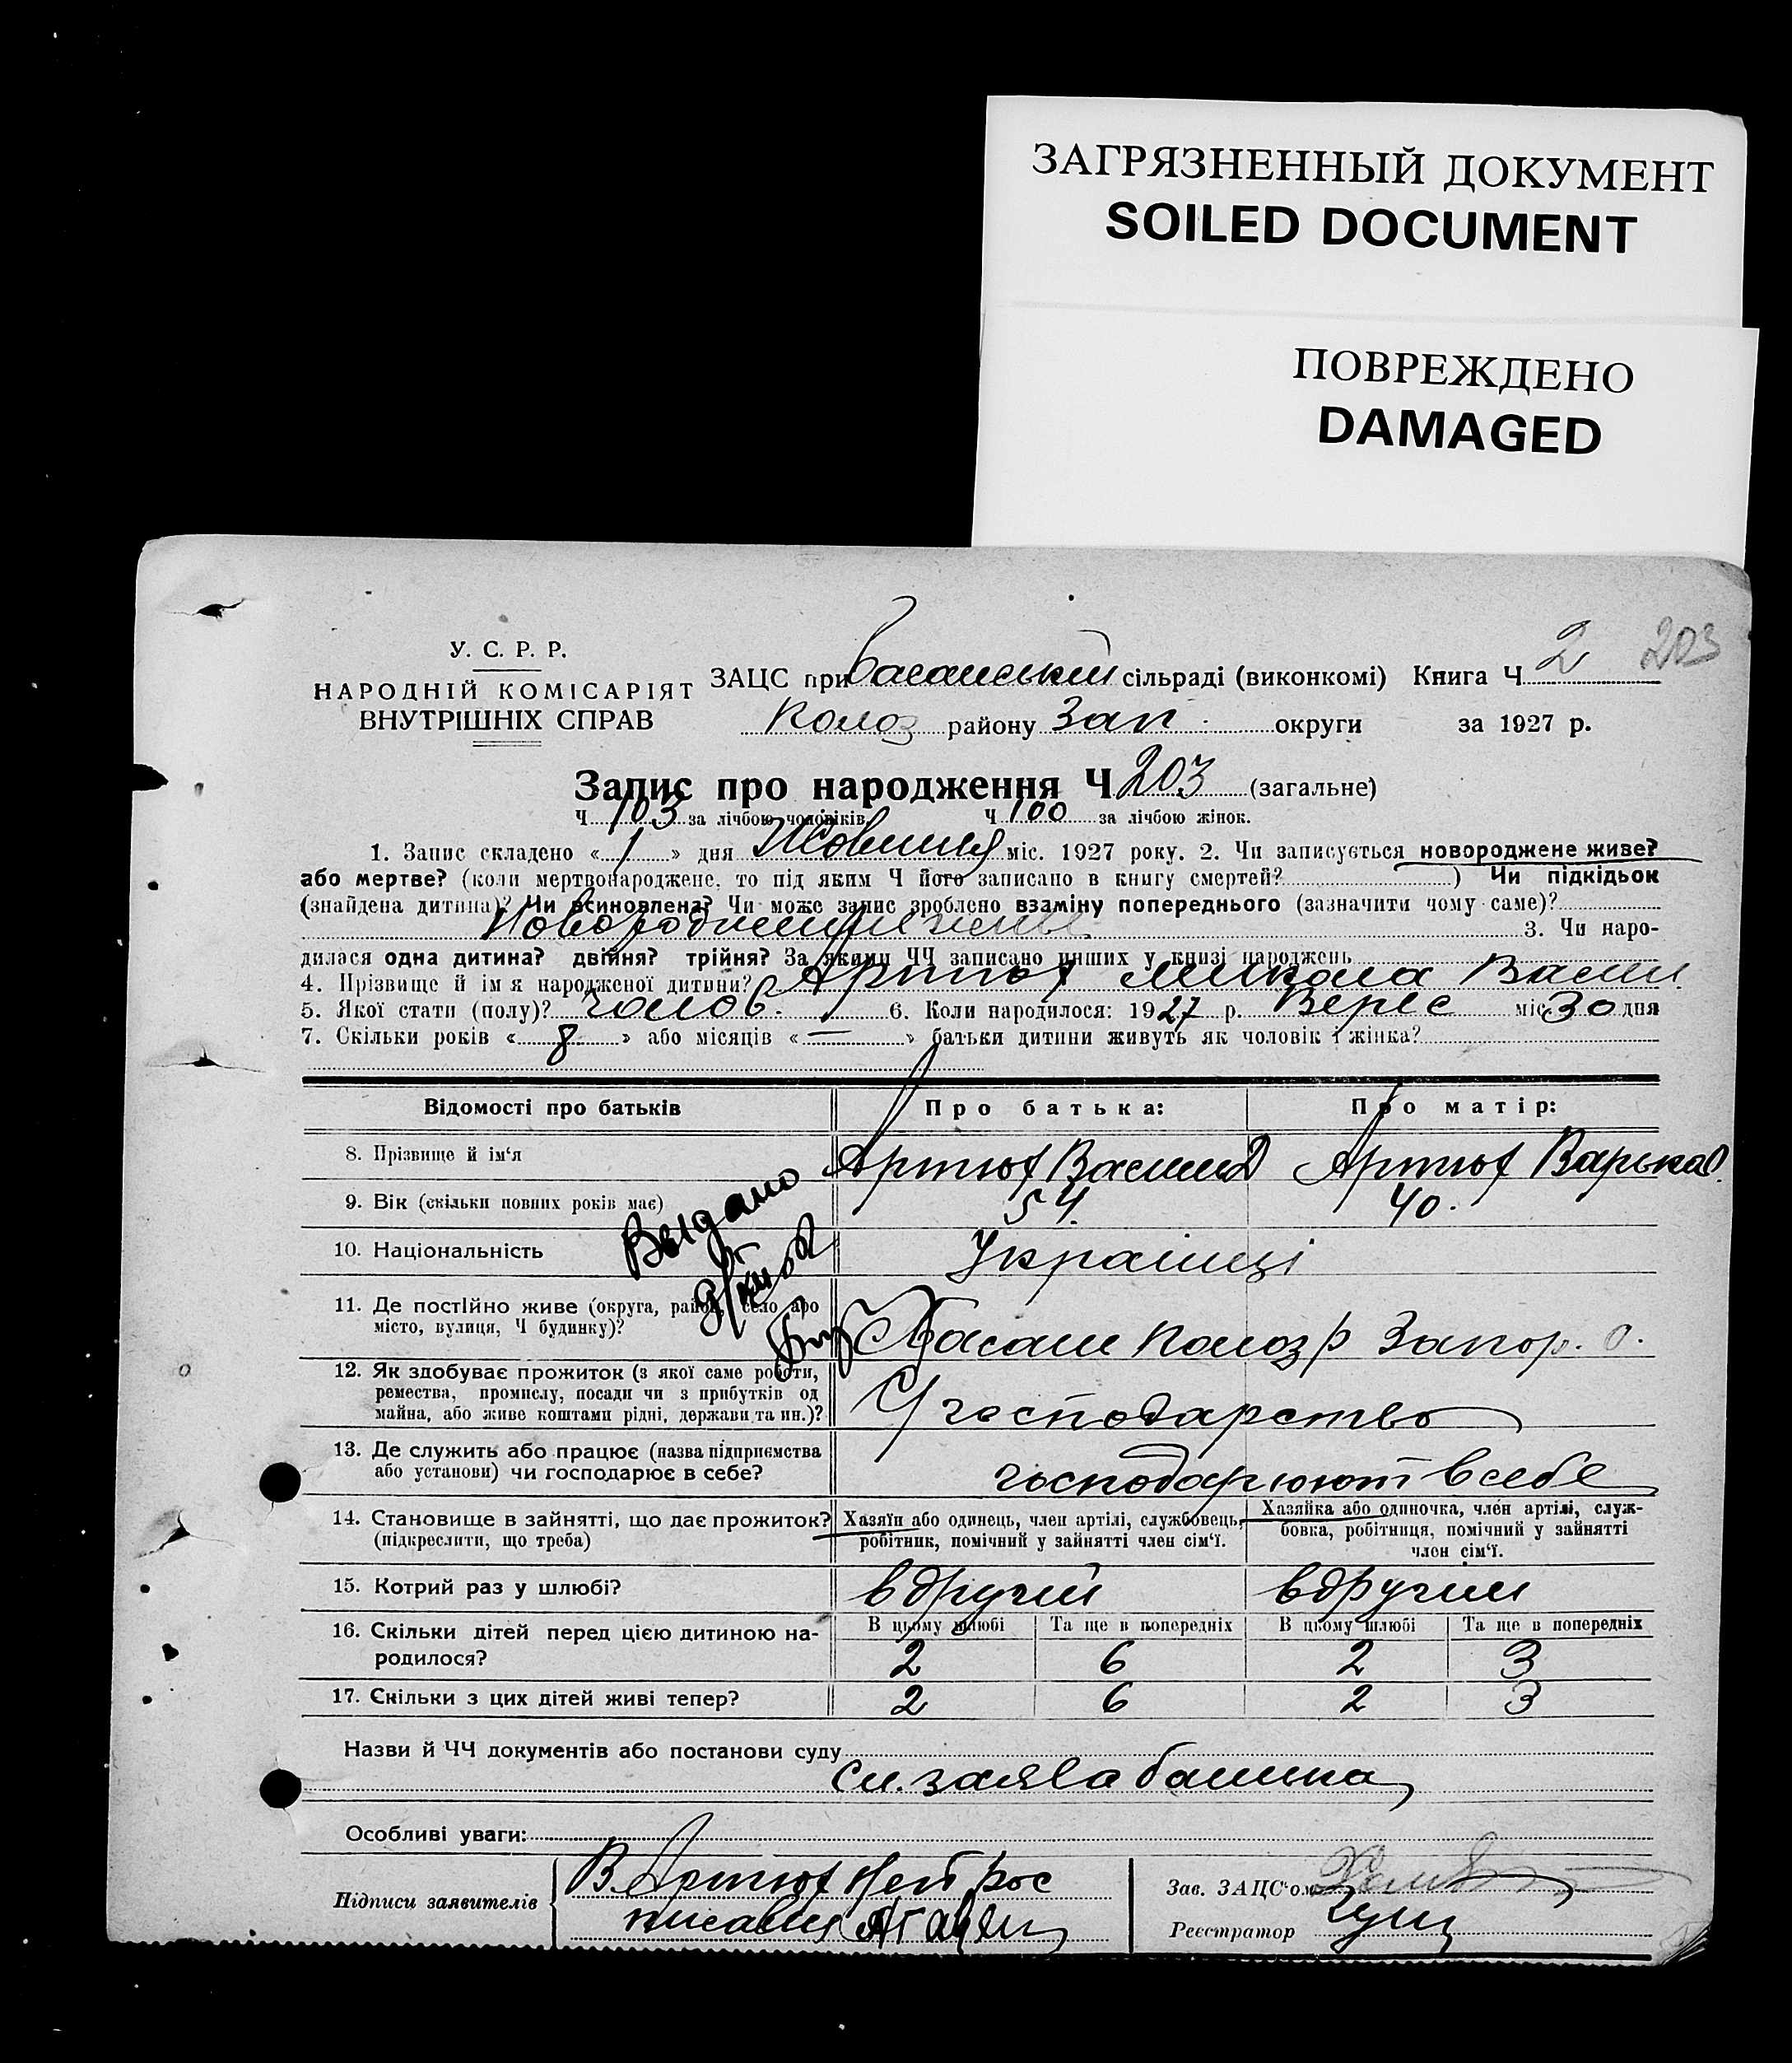 ЗАГРЯЗНЕННЫЙ ДОКУМЕНТ
SOILED DOCUMENT
ПОВРЕЖДЕНО
DAMAGED
203
У. С. Р. Р.
НАРОДНІЙ КОМІСАРІЯТ
ВНУТРІШНІХ СПРАВ
ЗАЦС при Басанській сільраді (виконкомі) Книга Ч 2
Колоз району Зап. округи за 1927 р.
Запис про народження Ч 203 (загальне)
Ч 103 за лічбою чоловіків. Ч 100 за лічбою жінок.
1. Запис складено « 1 » дня Жовтня міс. 1927 року. 2. Чи записується новороджене живе?
або мертве? (коли мертвонароджене, то під яким Ч його записано в книгу смертей? ) Чи підкідьок
(знайдена дитина)? Чи всиновлена? Чи може запис зроблено взаміну попереднього (зазначити чому саме)?
3. Чи наро-
дилася одна дитина? двійня? трійня? За якими ЧЧ записано инших у книзі народжень
4. Прізвище й ім'я народженої дитини? Артюх Микола Васил.
5. Якої стати (полу)? Чолов. 6. Коли народилося: 1927 р. Верес міс. 30 дня
7. Скільки років « 8 » або місяців « — » батьки дитини живуть як чоловік і жінка?
Відомості про батьків Про батька: Про матір:
8. Прізвище й ім'я Артюх Василь Артюх Варька
9. Вік (скільки повних років має) 54. 40.
10. Національність Українці
Видано
11. Де постійно живе (округа, район, село або
місто, вулиця, Ч будинку)? Басань Колоз р Запор. о.
12. Як здобуває прожиток (з якої саме роботи,
ремества, промислу, посади чи з прибутків од
майна, або живе коштами рідні, держави та ин.)? господарство
13. Де служить або працює (назва підприємства
або установи) чи господарює в себе? господарюют в себе
14. Становище в зайнятті, що дає прожиток?
(підкреслити, що треба)
Хазяїн або одинець, член артілі, службовець,
робітник, помічний у зайнятті член сім'ї.
Хазяйка або одиночка, член артілі, служ-
бовка, робітниця, помічний у зайнятті
член сім'ї.
15. Котрий раз у шлюбі? вдругий вдругий
16. Скільки дітей перед цією дитиною на-
родилося?
В цьому шлюбі Та ще в попередніх В цьому шлюбі Та ще в попередніх
2 6 2 3
17. Скільки з цих дітей живі тепер? 2 6 2 3
Назви й ЧЧ документів або постанови суду
сл. заява батька
Особливі уваги:
Підписи заявителів
В. Артюх
Зав. ЗАЦС'ом
Реєстратор